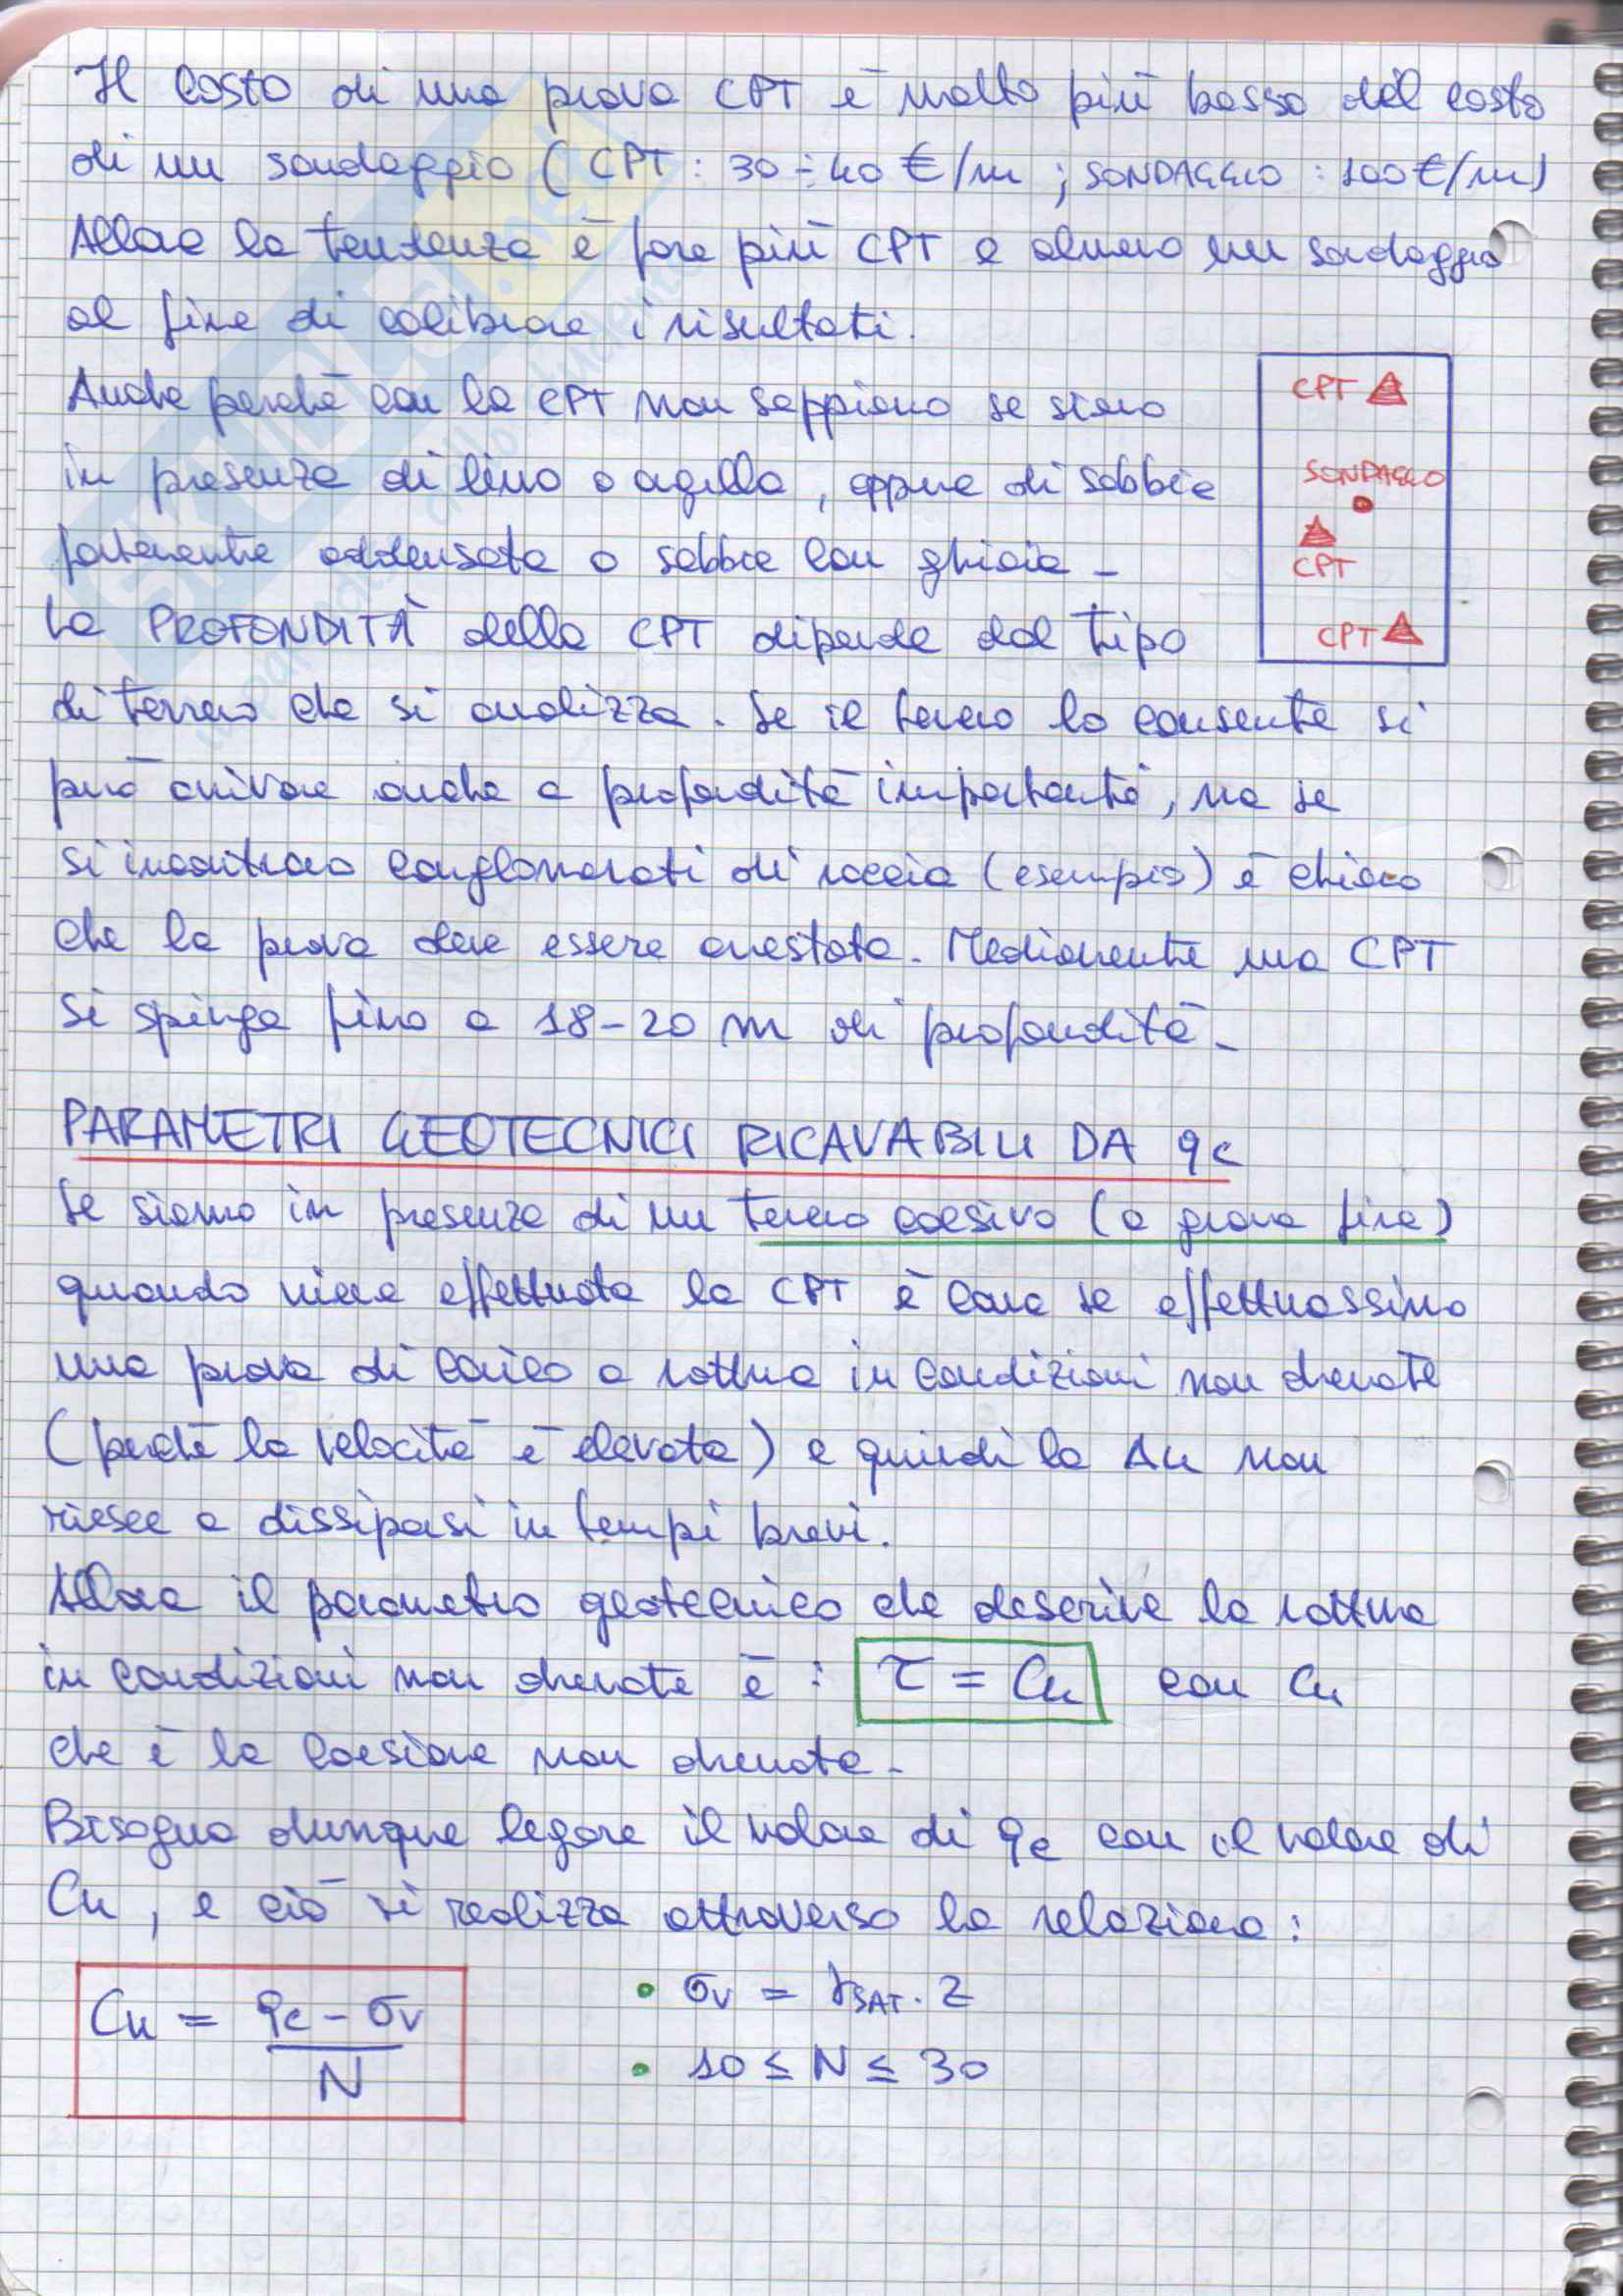 Il costo di una prova CPT è molto più basso del costo
di un sondaggio ( CPT : 30 ÷ 40 €/m ; SONDAGGIO : 100 €/m )
Allora la tendenza è fare più CPT e almeno un sondaggio
al fine di calibrare i risultati.
Anche perché con la CPT non sappiamo se siamo
in presenza di limo o argilla, oppure di sabbie
fortemente addensate o sabbie con ghiaia -
CPT
SONDAGGIO
CPT
CPT
La PROFONDITÀ della CPT dipende dal tipo
di terreno che si analizza. Se il terreno lo consente si
può arrivare anche a profondità importanti, ma se
si incontrano conglomerati di roccia (esempio) è chiaro
che la prova deve essere arrestata. Mediamente una CPT
si spinge fino a 18-20 m di profondità -
PARAMETRI GEOTECNICI RICAVABILI DA qc
Se siamo in presenza di un terreno coesivo (a grana fine)
quando viene effettuata la CPT è come se effettuassimo
una prova di carico a rottura in condizioni non drenate
(perché la velocità è elevata) e quindi la Δu non
riesce a dissiparsi in tempi brevi.
Allora il parametro geotecnico che descrive la rottura
in condizioni non drenate è : τ = Cu con Cu
che è la coesione non drenata -
Bisogna dunque legare il valore di qc con il valore di
Cu, e ciò si realizza attraverso la relazione :
Cu = qc - σv / N
• σv = γSAT · Z
• 10 ≤ N ≤ 30